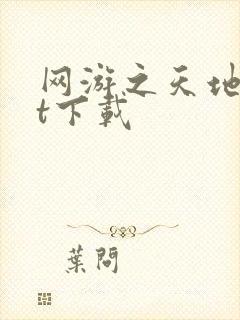 网游之天地
t下载
葉問